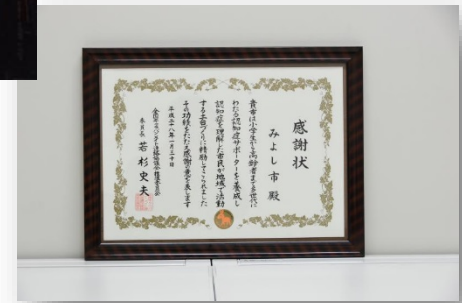 感謝状
みよし市 殿
貴市は小学生から高齢者まで多世代に
わたる認知症サポーターを養成し
認知症を理解した市民が地域で活動
する土台づくりに精励してこられました
その功績をたたえ感謝の意を表します
平成二十八年一月三十日
委員長 若杉史夫